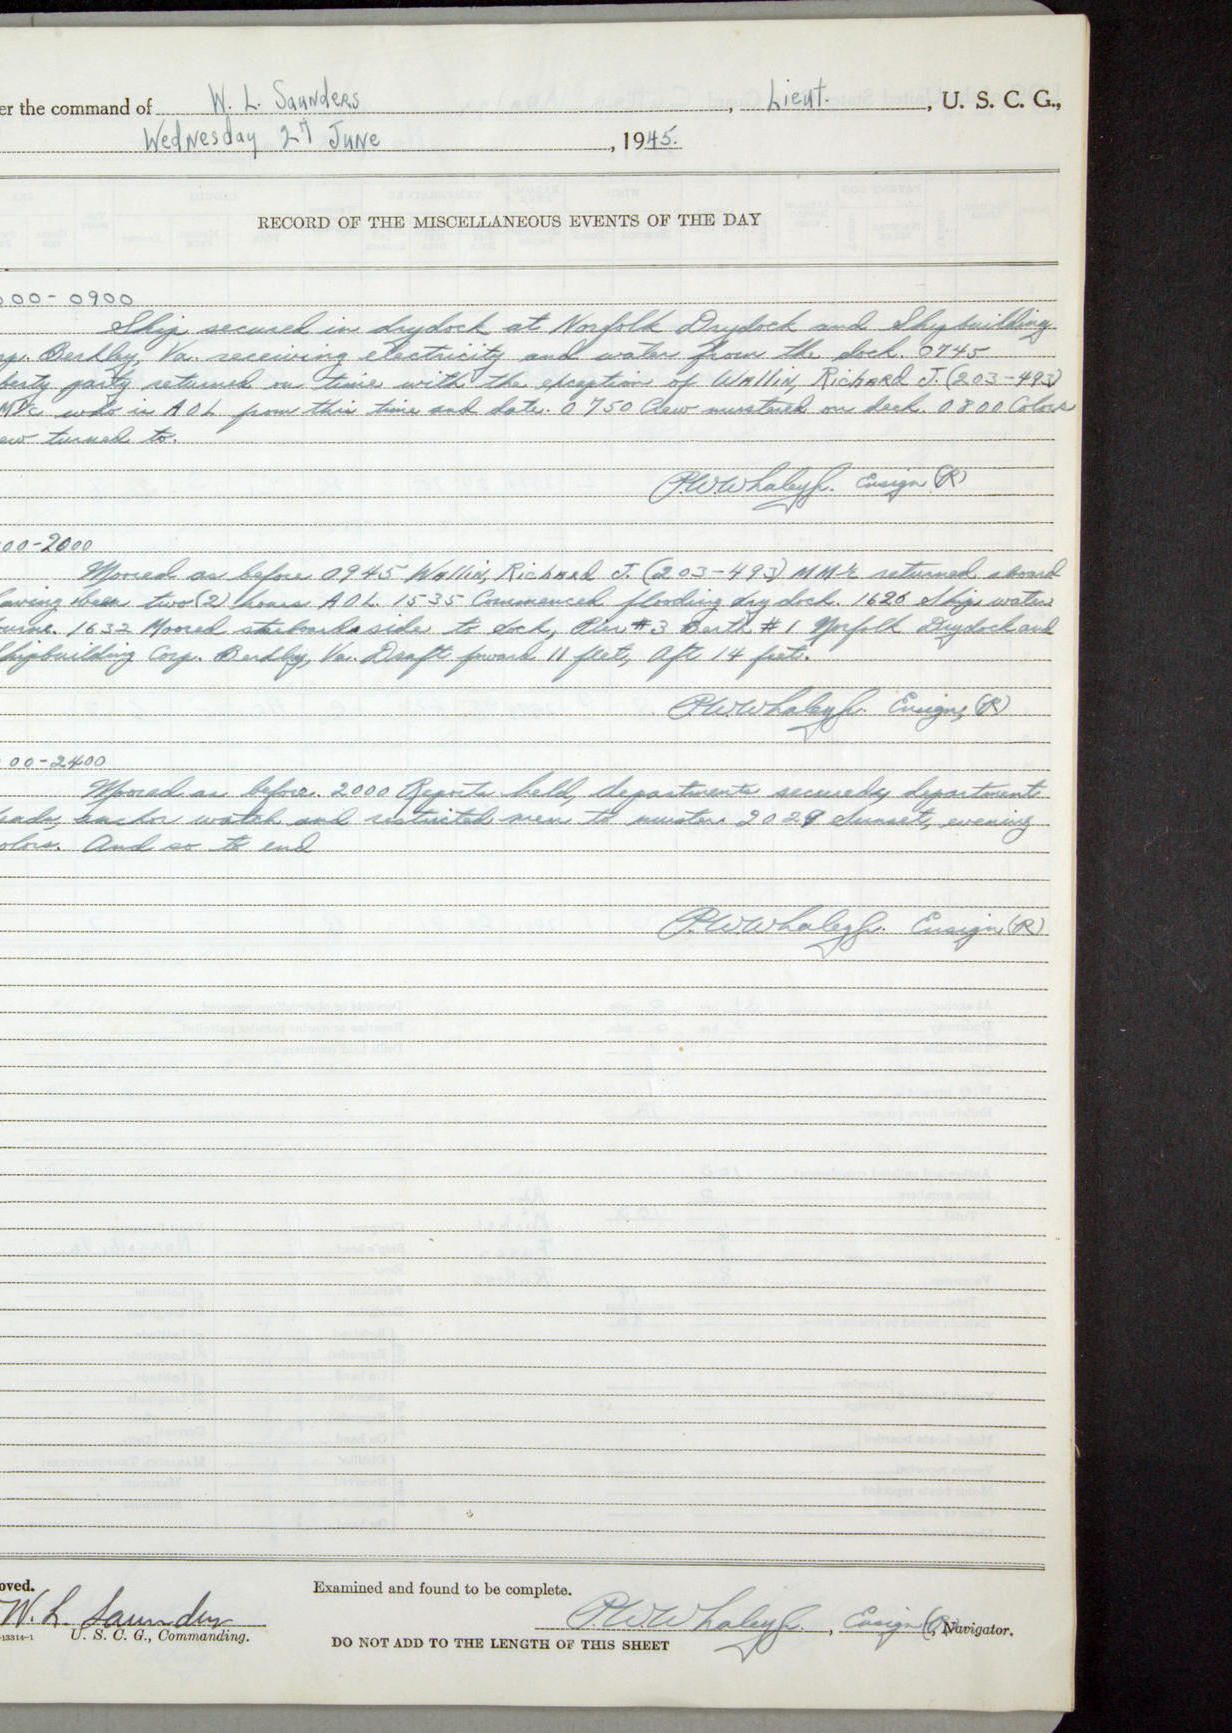 er the command of W. L. Saunders, Lieut., U. S. C. G.,
Wednesday 27 June, 1945.
RECORD OF THE MISCELLANEOUS EVENTS OF THE DAY
00-0900
Ship secured in drydock at Norfolk Drydock and Shipbuilding
rp. Berkley, Va. receiving electricity and water from the dock. 0745
berty party returned on time with the exception of Wallin, Richard J. (203-493)
who is AOL from this time and date. 0750 Crew mustered on deck. 0800 Colors
ew turned to.
P.W.Whaley Jr. Ensign (R)
00-2000
Moored as before 0945 Wallin, Richard J. (203-493) returned aboard
aving been two (2) hours AOL. 1535 Commenced flooding dry dock. 1620 Ship water
burne. 1632 Moored starboard side to dock, Pier #3 Berth #1 Norfolk Drydock and
Shipbuilding Corp. Berkley, Va. Draft forward 11 feet, Aft 14 feet.
P.W.Whaley Jr. Ensign, (R)
00-2400
Moored as before. 2000 Reports held, departments secure by department
eads, anchor watch and restricted men to muster. 2029 Sunset, evening
olors. And so to end
P.W.Whaley Jr. Ensign (R)
oved.
Examined and found to be complete.
W. L. Saunders
P.W.Whaley Jr., Ensign (R), Navigator.
-13314-1 U. S. C. G., Commanding.
DO NOT ADD TO THE LENGTH OF THIS SHEET